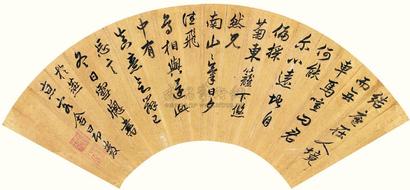 結廬在人境
而無
車馬喧問君
何能
尔心遠地自
偏採
菊東籬下悠
然見
南山山氣日夕
佳飛
鳥相與還此
中有
真意欲辨已
忘言
冬日雪窗書
於燕